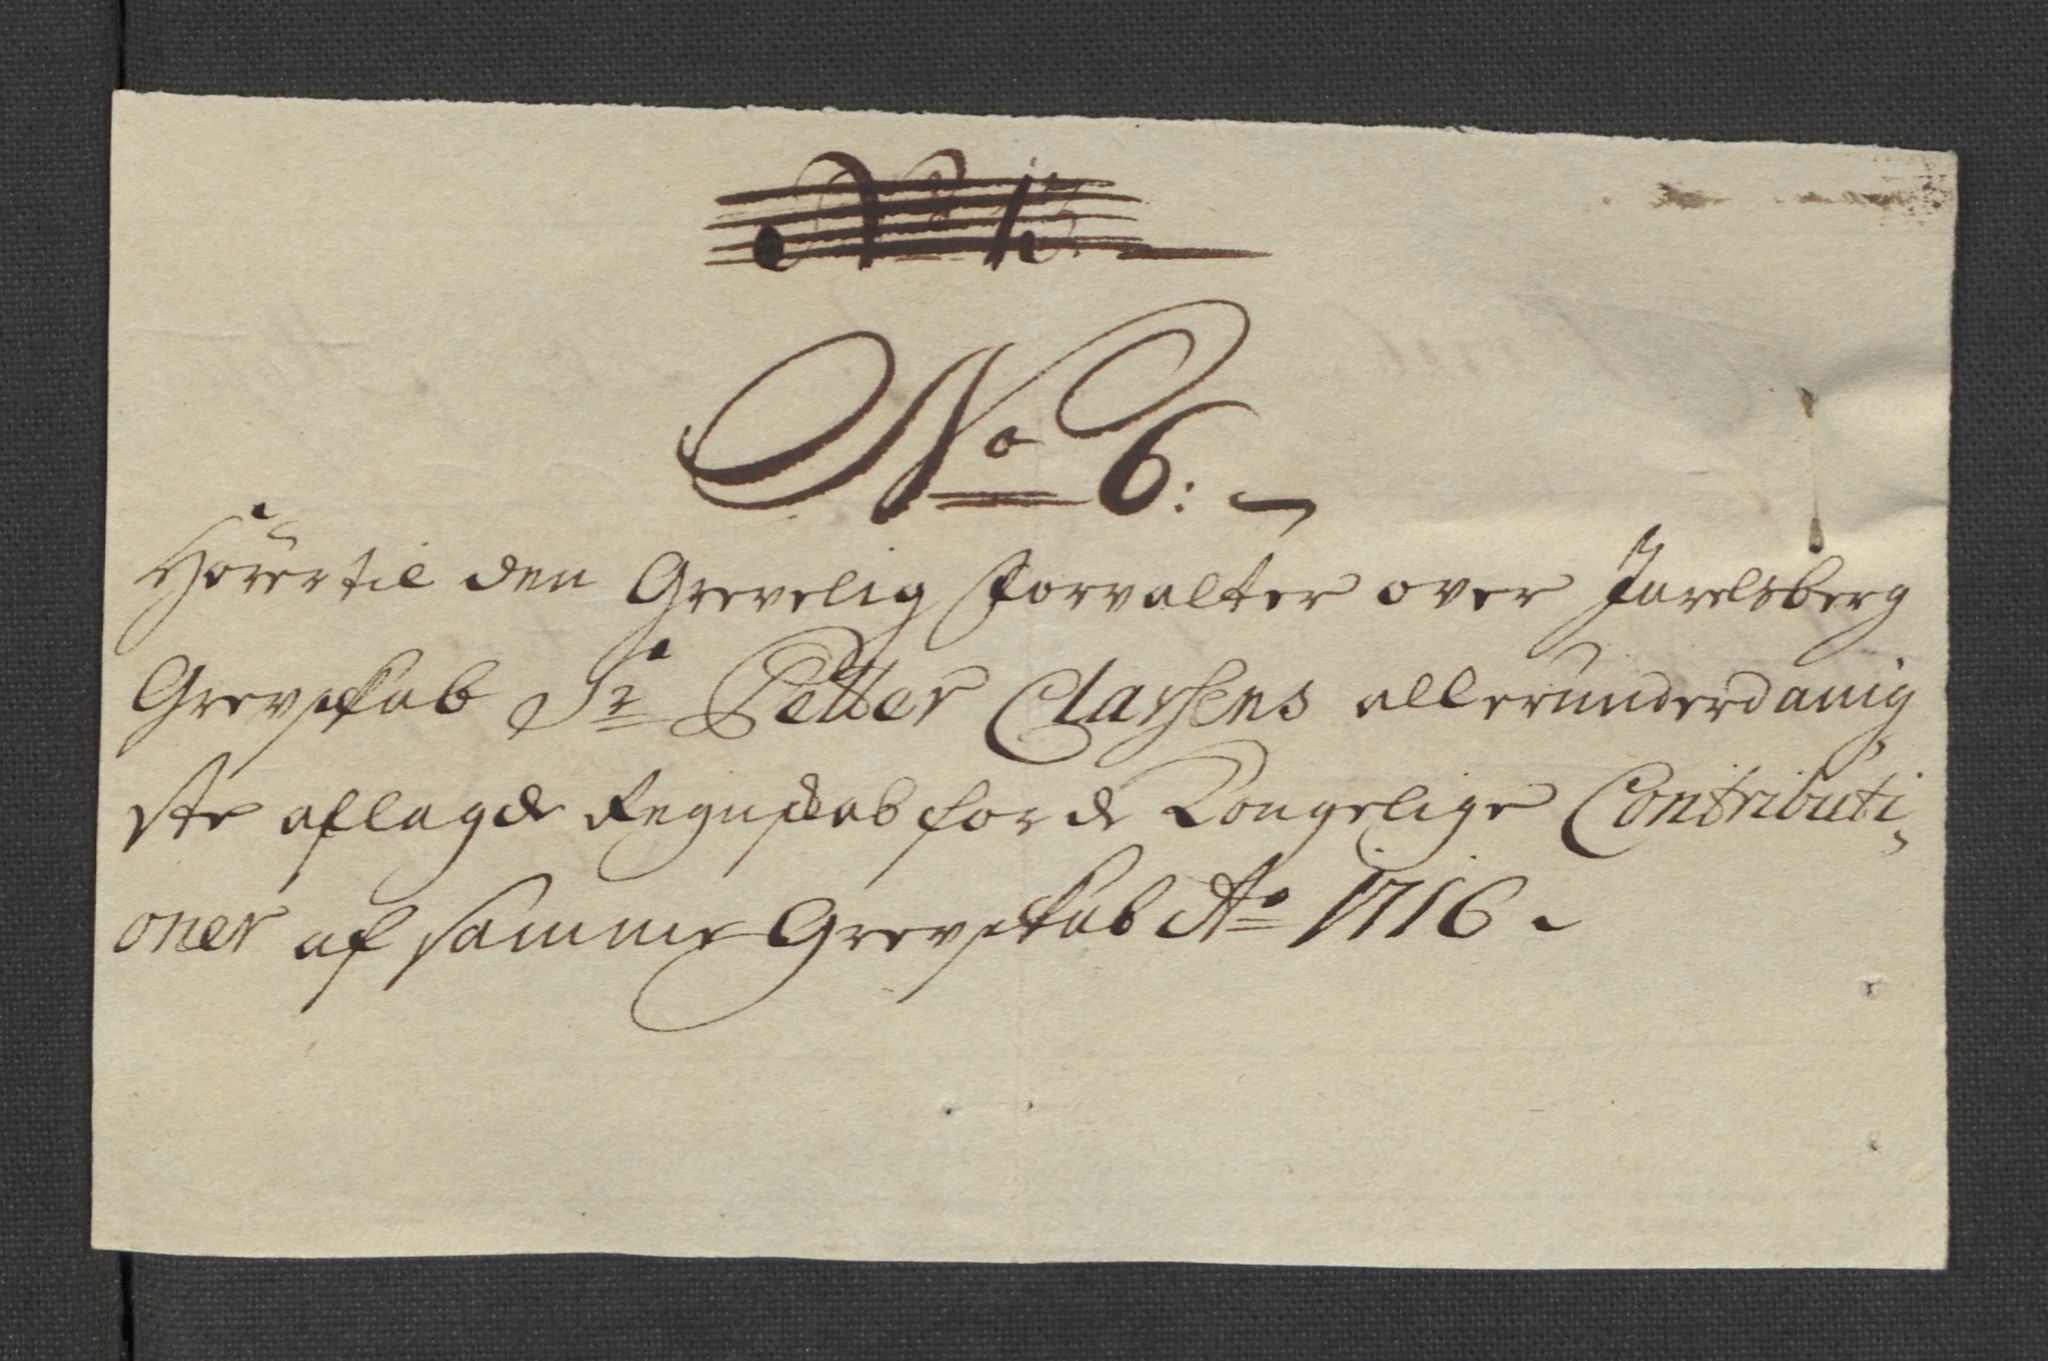 No 6:
Hörer til den Grevelig Forvalter over Jarelsberg
Grevskab Sr Petter Clausens allerunderdanig
ste aflagde Regnskab for de Kongelige Contributi
oner af samme Grevskab Ao 1716